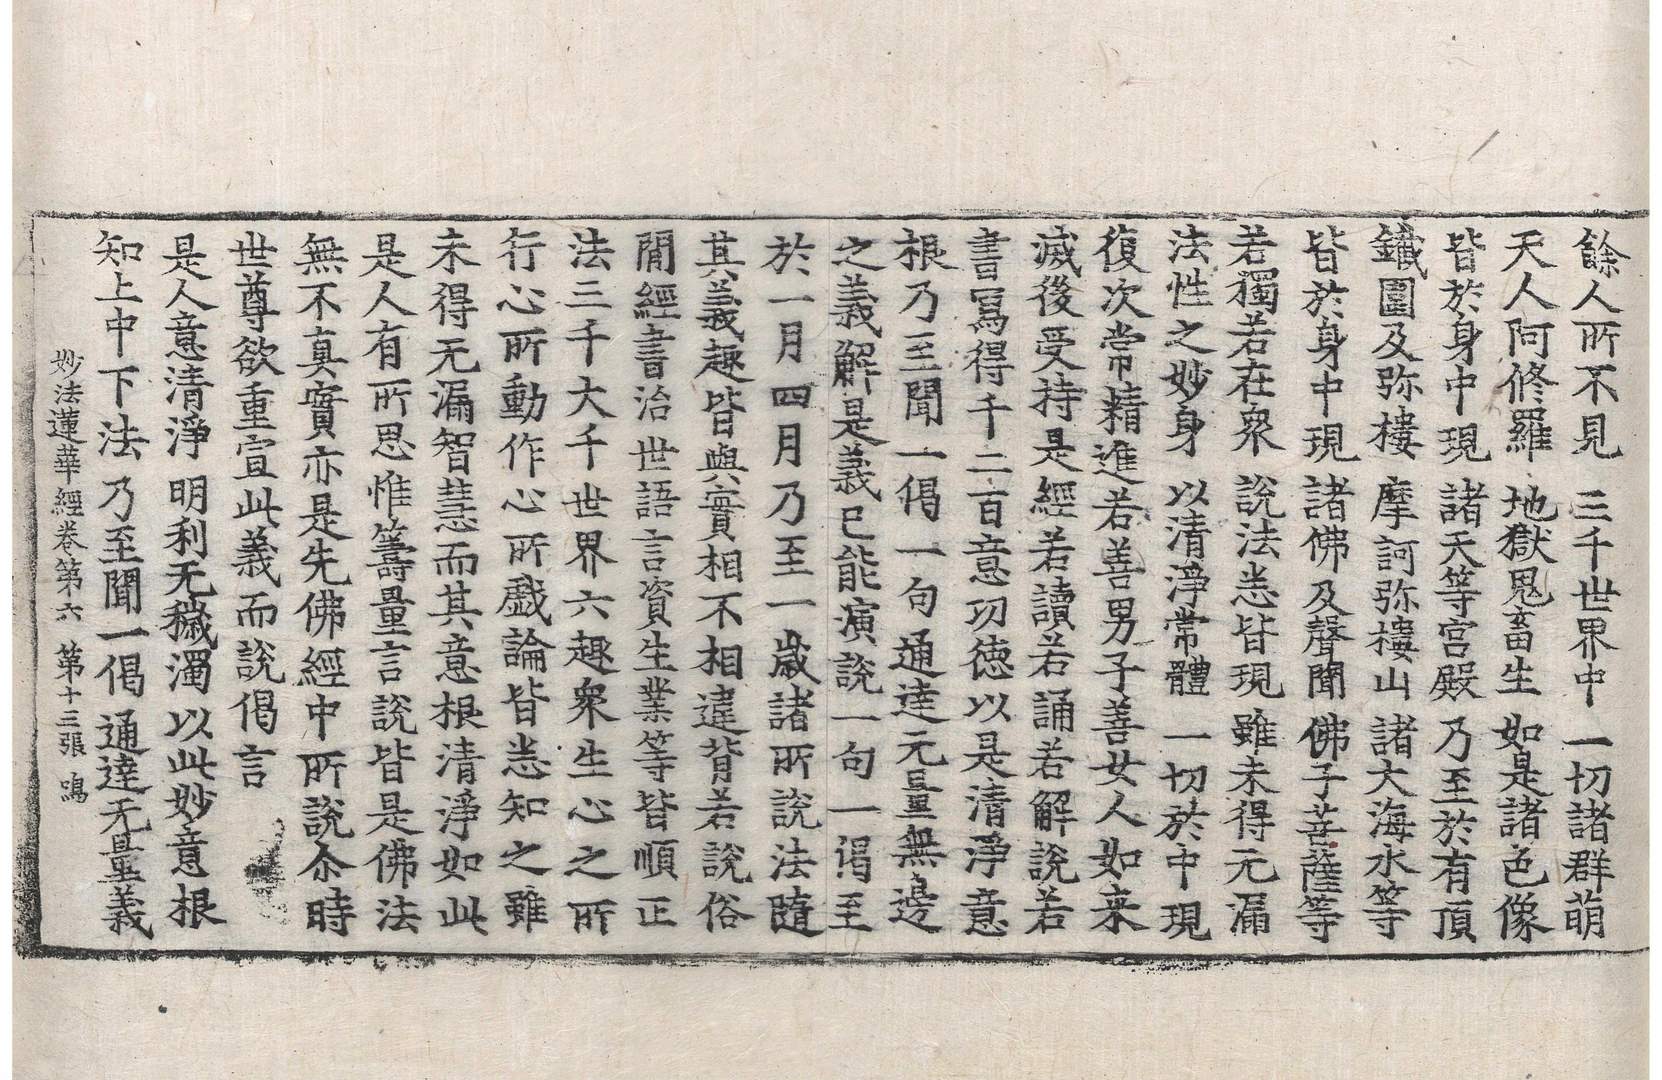 餘人所不見 三千世界中 一切諸群萌
天人阿修羅 地獄鬼畜生 如是諸色像
皆於身中現 諸天等宮殿 乃至於有頂
鐵圍及弥樓 摩訶弥樓山 諸大海水等
皆於身中現 諸佛及聲聞 佛子菩薩等
若獨若在衆 說法悉皆現 雖未得无漏
法性之妙身 以清淨常體 一切於中現
復次常精進若善男子善女人如来
滅後受持是經若讀若誦若解說若
書寫得千二百意功徳以是清淨意
根乃至聞一偈一句通達无量無邊
之義解是義已能演說一句一偈至
於一月四月乃至一歲諸所說法隨
其義趣皆與實相不相違背若說俗
閒經書治世語言資生業等皆順正
法三千大千世界六趣衆生心之所
行心所動作心所戱論皆悉知之雖
未得无漏智慧而其意根清淨如此
是人有所思惟籌量言說皆是佛法
無不真實亦是先佛經中所說尒時
世尊欲重宣此義而說偈言
是人意清淨 明利无穢濁 以此妙意根
知上中下法 乃至聞一偈 通達无量義
妙法蓮華經卷第六 第十三張 鳴